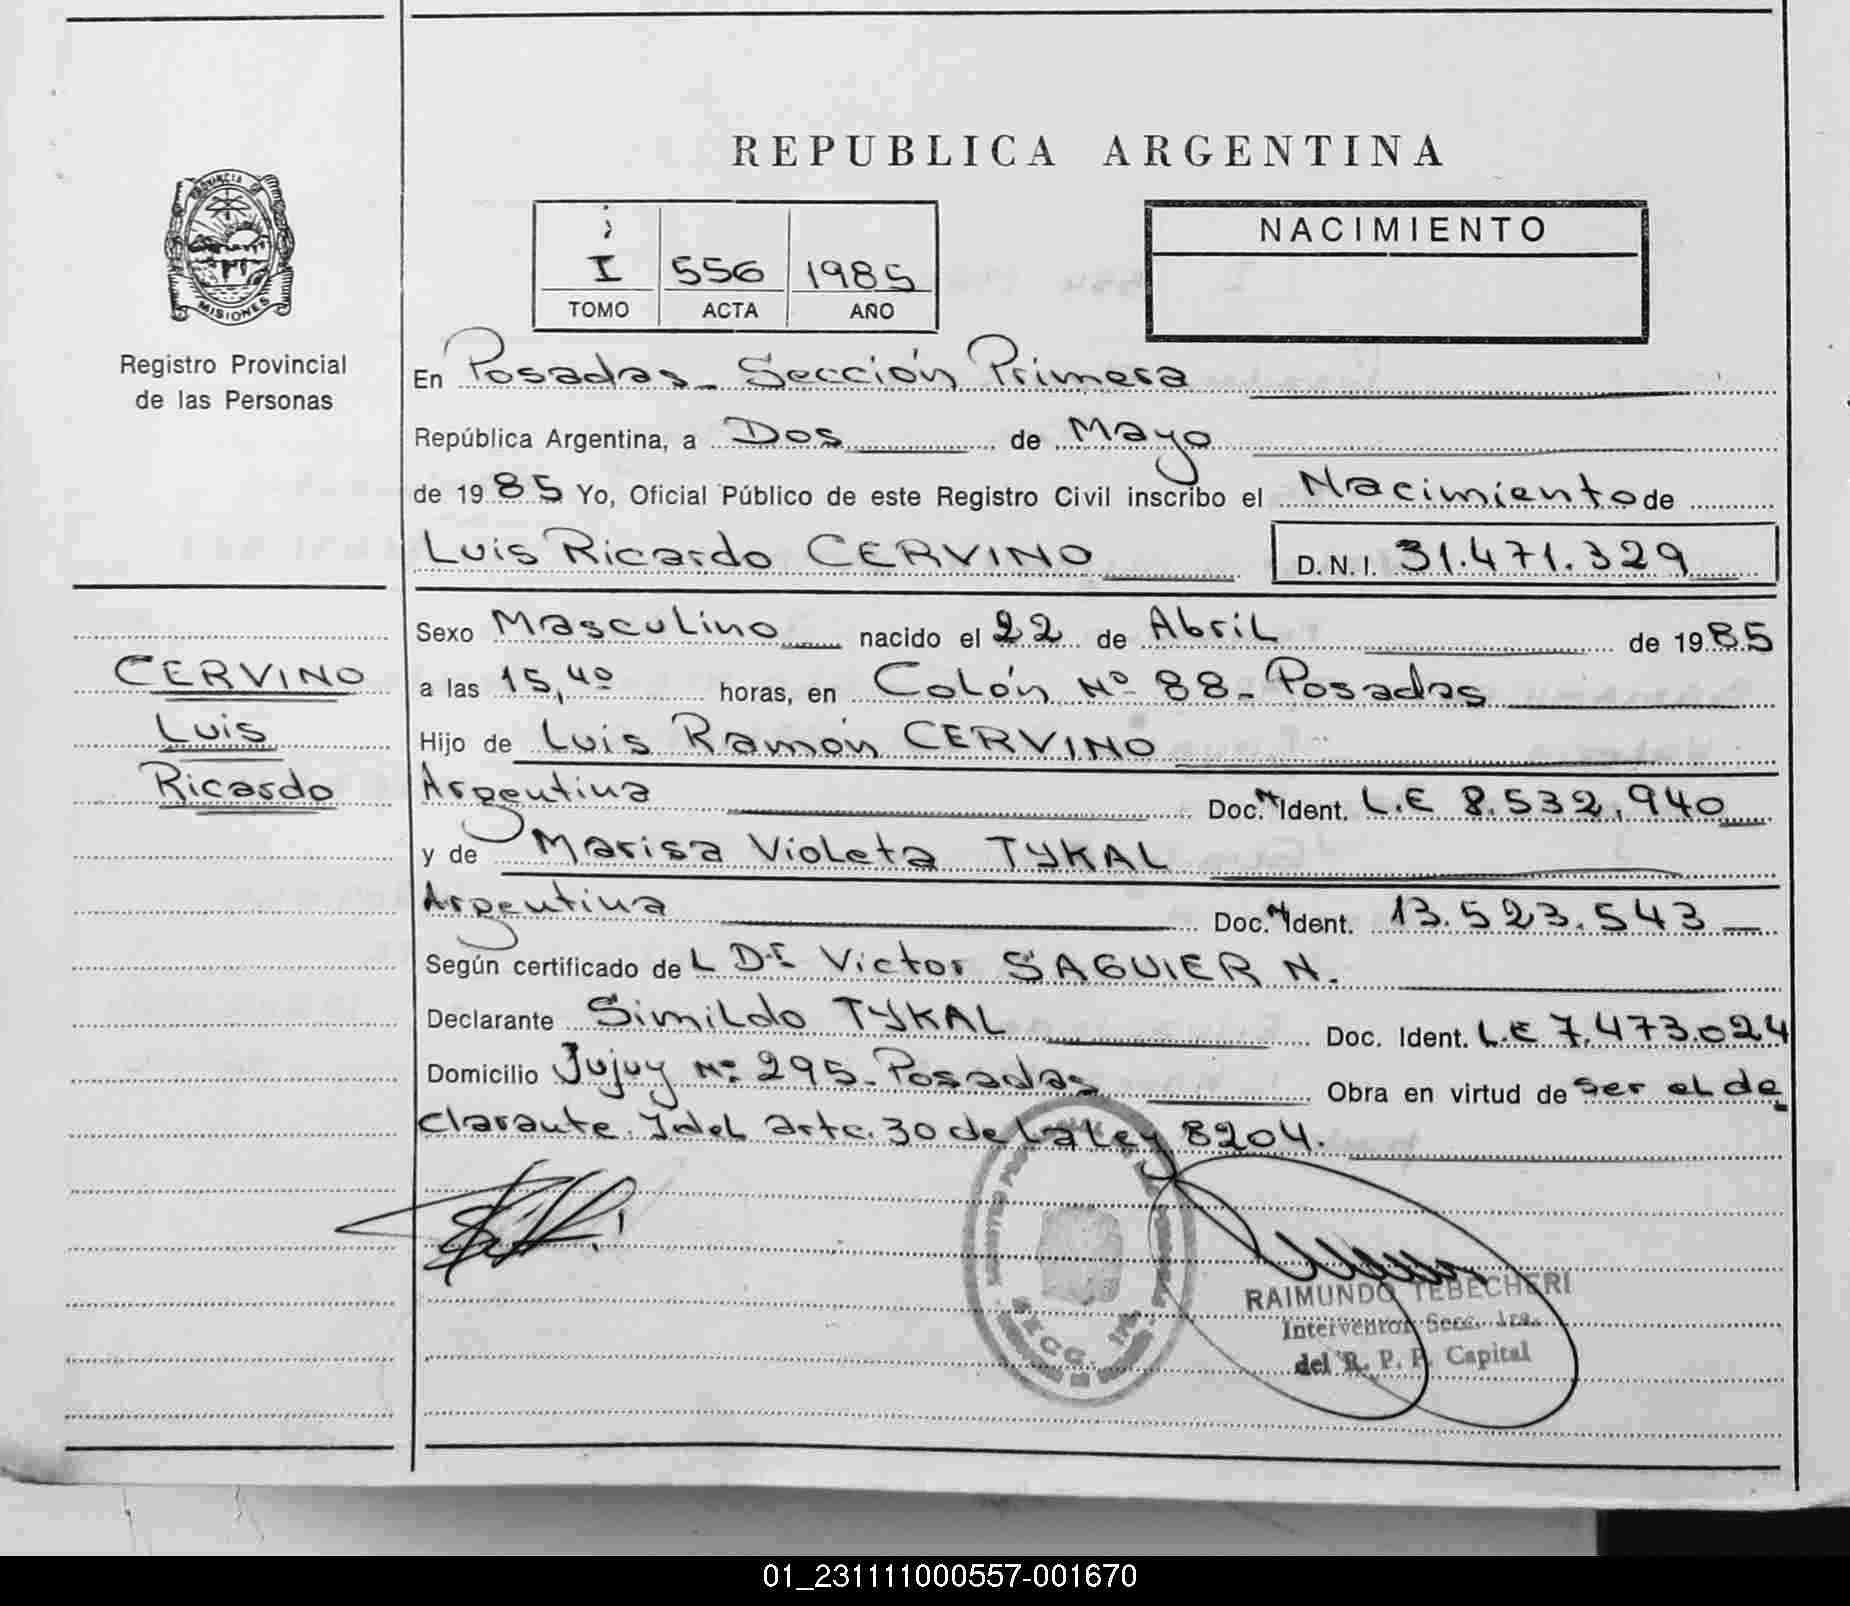 REPUBLICA ARGENTINA
PROVINCIA DE
MISIONES
Registro Provincial
de las Personas
I 556 1985
TOMO ACTA AÑO
NACIMIENTO
En Posadas - Sección Primera
República Argentina, a Dos de Mayo
de 1985 Yo, Oficial Público de este Registro Civil inscribo el Nacimiento de
Luis Ricardo CERVINO D.N.I. 31.471.329
Sexo Masculino nacido el 22 de Abril de 1985
a las 15,40 horas, en Colón Nº 88 - Posadas
Hijo de Luis Ramón CERVINO
Argentina Doc. Ident. L.E 8.532.940
y de Marisa Violeta TYKAL
Argentina Doc. Ident. 13.523.543
Según certificado de L Victor SAGUIER N.
Declarante Simildo TYKAL Doc. Ident. L.E 7.473.024
Domicilio Jujuy Nº 295 - Posadas Obra en virtud de ser el de
clarante y del artc. 30 de la Ley 8204.
CERVINO
Luis
Ricardo
SECC. 1ra.
RAIMUNDO TEBECHERI
Interventor Secc. 1ra.
del R. P. P. Capital
01_231111000557-001670